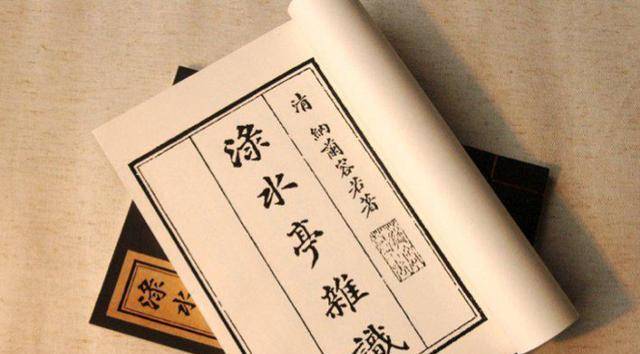 清 納蘭容若著
淥水亭雜識
淥水